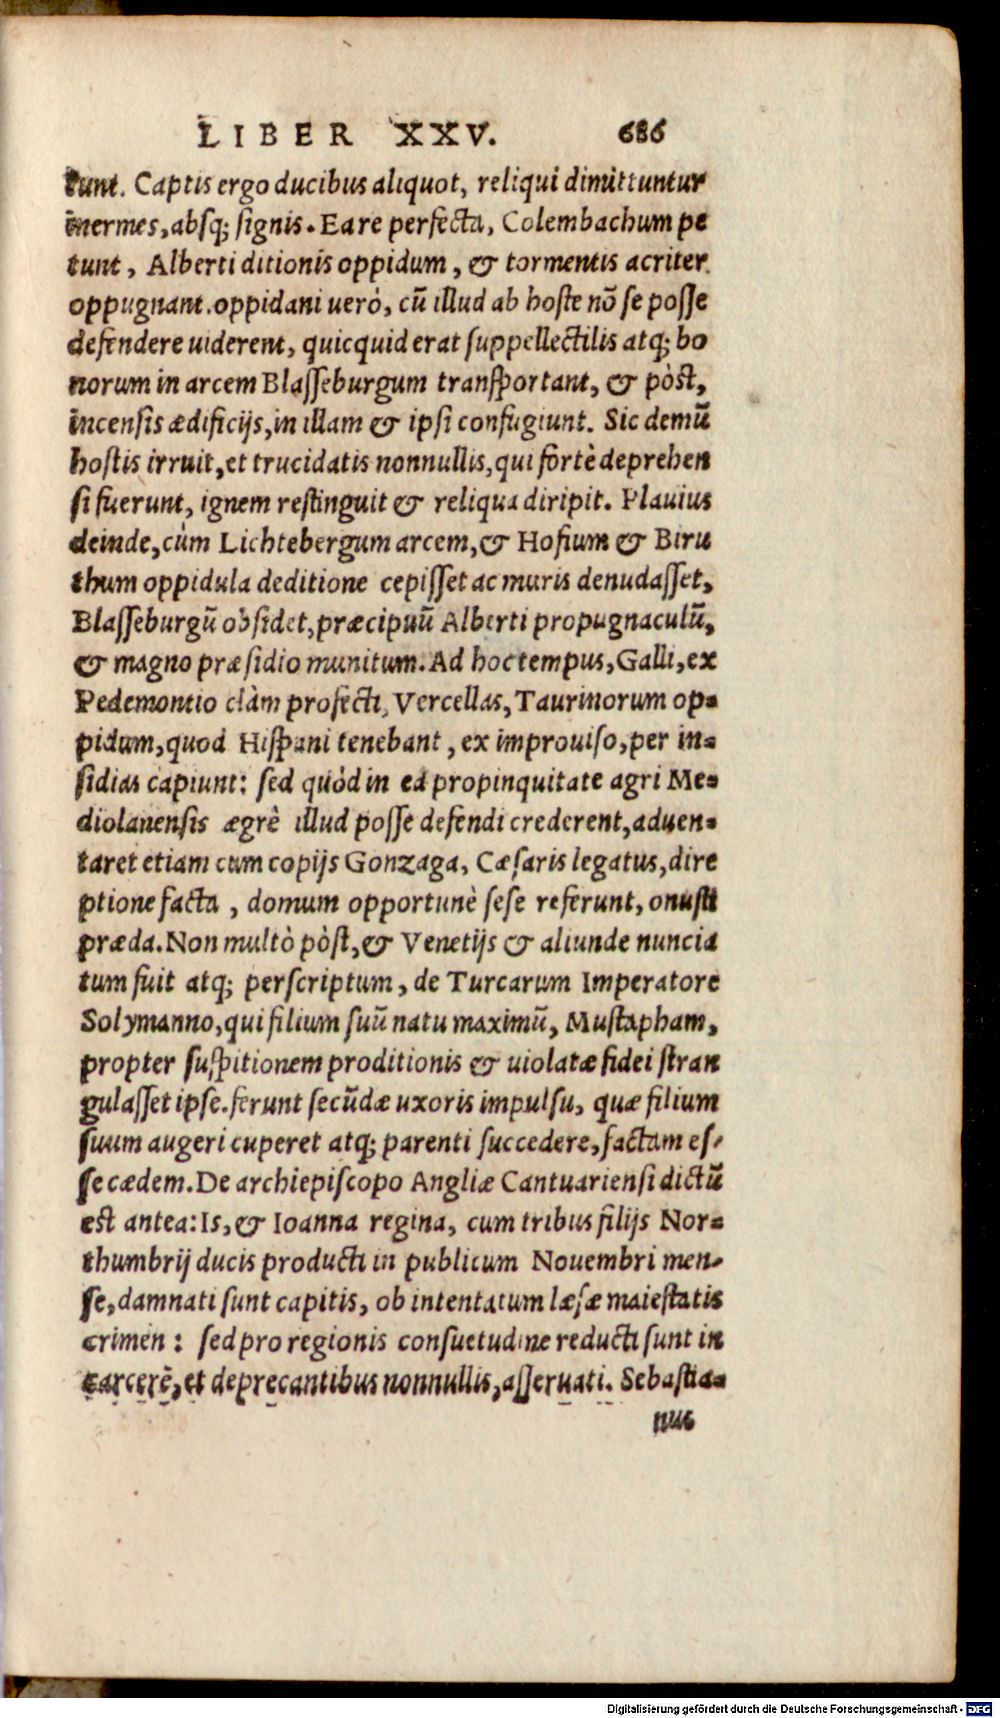 LIBER XXV. 686
tunt. Captis ergo ducibus aliquot, reliqui dimittuntur
inermes, absq; signis. Ea re perfecta, Colembachum pe
tunt, Alberti ditionis oppidum, & tormentis acriter
oppugnant. oppidani uerò, cū illud ab hoste nō se posse
defendere uiderent, quicquid erat suppellectilis atq; bo
norum in arcem Blasseburgum transportant, & pòst,
incensis ædificijs, in illam & ipsi confugiunt. Sic demū
hostis irruit, et trucidatis nonnullis, qui fortè deprehen
si fuerunt, ignem restinguit & reliqua diripit. Plauius
deinde, cùm Lichtebergum arcem, & Hofium & Biru
thum oppidula deditione cepisset ac muris denudasset,
Blasseburgū obsidet, præcipuū Alberti propugnaculū,
& magno præsidio munitum. Ad hoc tempus, Galli, ex
Pedemontio clàm profecti, Vercellas, Taurinorum op-
pidum, quod Hispani tenebant, ex improuiso, per in-
sidias capiunt: sed quòd in ea propinquitate agri Me-
diolanensis ægrè illud posse defendi crederent, aduen-
taret etiam cum copijs Gonzaga, Cæsaris legatus, dire
ptione facta, domum opportunè sese referunt, onusti
præda. Non multò pòst, & Venetijs & aliunde nuncia
tum fuit atq; perscriptum, de Turcarum Imperatore
Solymanno, qui filium suū natu maximū, Mustapham,
propter suspitionem proditionis & uiolatæ fidei stran
gulasset ipse. ferunt secūdæ uxoris impulsu, quæ filium
suum augeri cuperet atq; parenti succedere, factam es-
se cædem. De archiepiscopo Angliæ Cantuariensi dictū
est antea: Is, & Ioanna regina, cum tribus filijs Nor-
thumbrij ducis producti in publicum Nouembri men-
se, damnati sunt capitis, ob intentatum læsæ maiestatis
crimen: sed pro regionis consuetudine reducti sunt in
carcerē, et deprecantibus nonnullis, asseruati. Sebastia-
nus
Digitalisierung gefördert durch die Deutsche Forschungsgemeinschaft - DFG